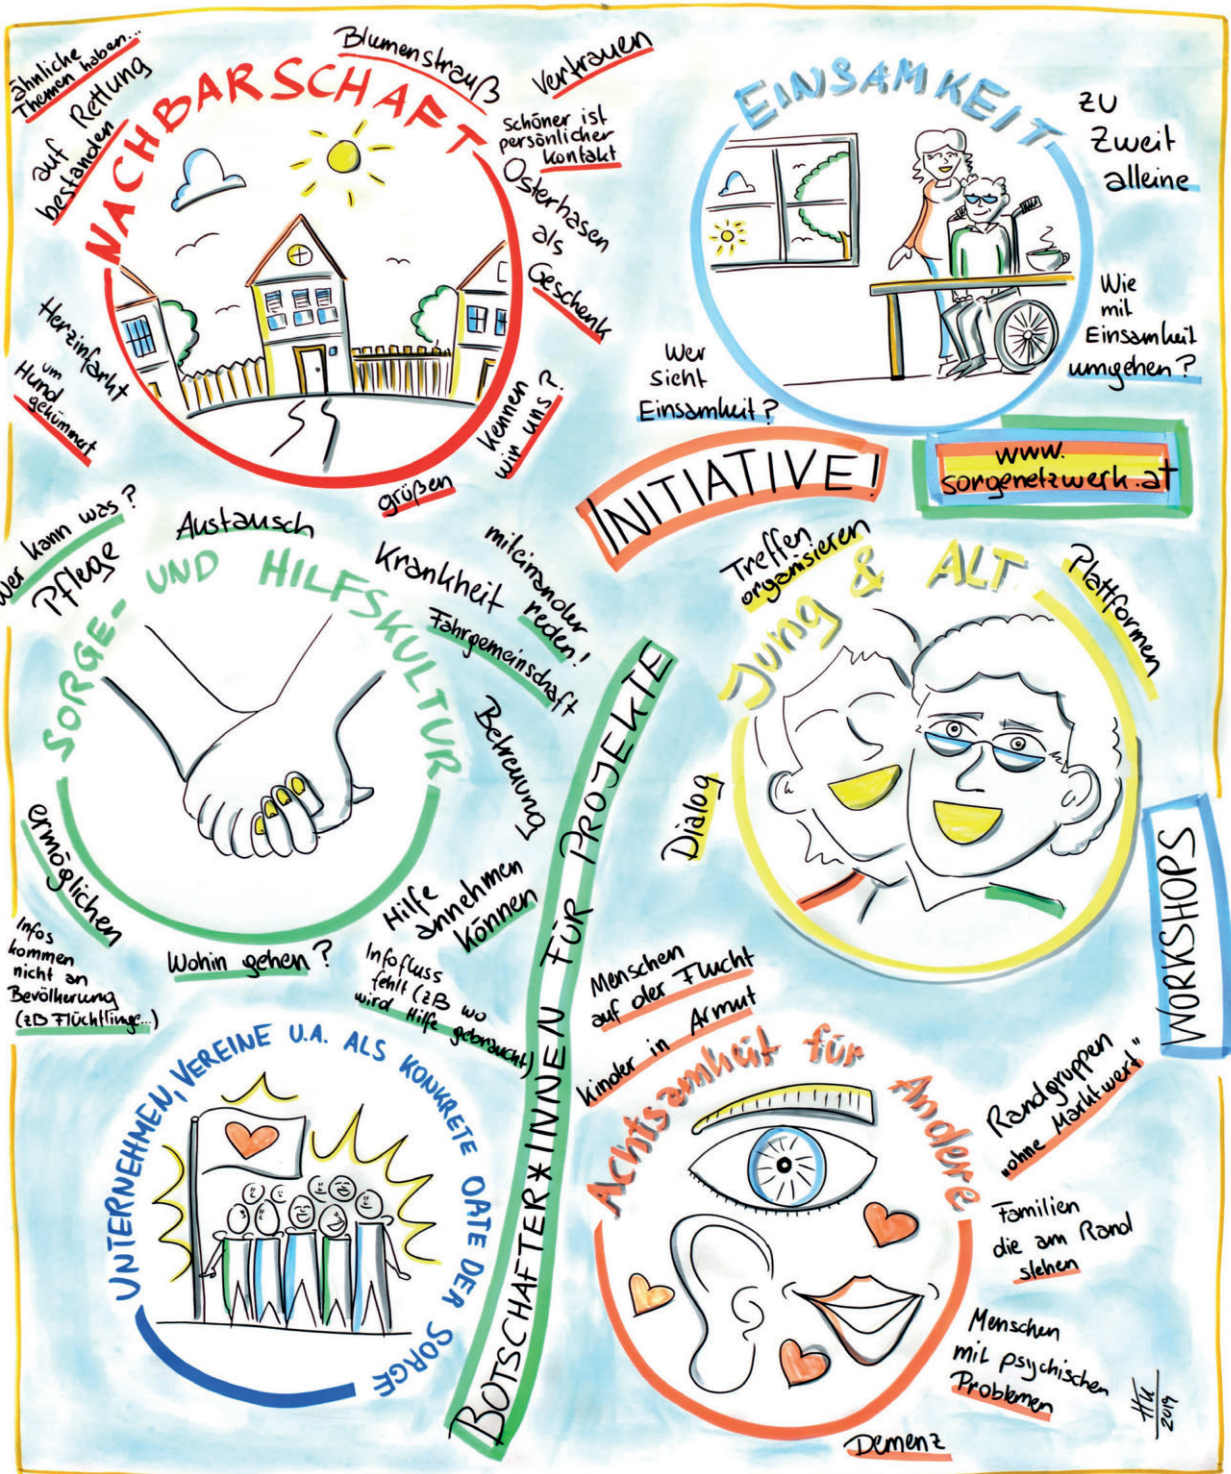 ähnliche
Themen haben...
auf Rettung
bestanden
NACHBARSCHAFT
Blumenstrauß
Vertrauen
schöner ist
persönlicher
Kontakt
Osterhasen
als
Geschenk
Herzinfarkt
um
Hund
gekümmert
kennen
wir uns?
grüßen
EINSAMKEIT
zu
zweit
alleine
Wie
mit
Einsamkeit
umgehen?
Wer
sieht
Einsamkeit?
INITIATIVE!
www.
sorgenetzwerk.at
Wer kann was?
Pflege
Austausch
SORGE- UND HILFSKULTUR
Krankheit
miteinander
reden!
Fahrgemeinschaft
Betreuung
ermöglichen
Infos
kommen
nicht an
Bevölkerung
(zB Flüchtlinge...)
Wohin gehen?
Hilfe
annehmen
können
Infofluss
fehlt (zB wo
wird Hilfe gebraucht)
BOTSCHAFTER*INNEN FÜR PROJEKTE
Treffen
organisieren
Jung & ALT
Plattformen
Dialog
WORKSHOPS
UNTERNEHMEN, VEREINE U.A. ALS KONKRETE ORTE DER SORGE
Menschen
auf der Flucht
Kinder in Armut
Achtsamkeit für Andere
Randgruppen
„ohne Marktwert"
Familien
die am Rand
stehen
Menschen
mit psychischen
Problemen
Demenz
2019